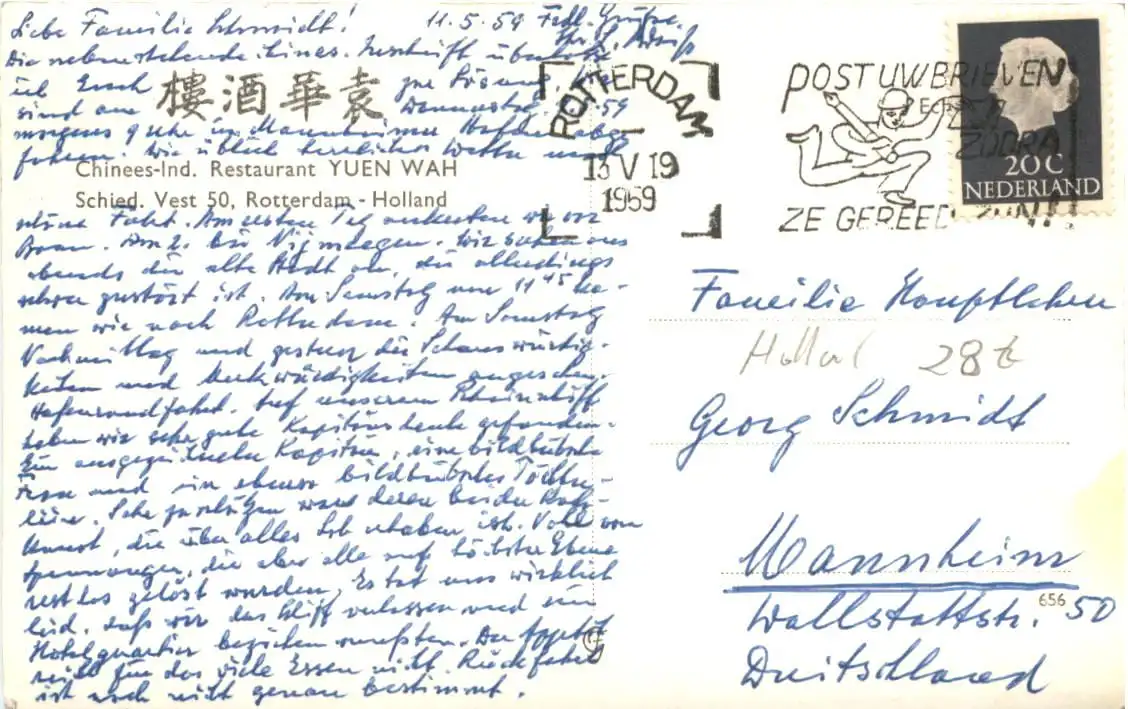 Liebe Familie Schmidt! 11.5.59 Frdl. Grüße
Die nebenstehende chines. Inschrift
ich Euch zur Lösung.
樓酒華袁
sind am Donnerstag 59
morgens 9 Uhr im Mannheimer Hafen abge-
fahren. Wie üblich herrliches Wetter und
Chinees-Ind. Restaurant YUEN WAH
Schied. Vest 50, Rotterdam - Holland
schöne Fahrt. Am ersten Tag ankerten wir vor
Bonn. Am 2. bei Nymwegen. Wir sahen uns
abends die alte Stadt an, die allerdings
schwer zerstört ist. Am Samstag um 11 45 ka-
men wir nach Rotterdam. Am Samstag
Nachmittag und gestern die Sehenswürdig-
keiten und Merkwürdigkeiten angesehen.
Hafenrundfahrt. Auf unserem Rheinschiff
haben wir sehr gute Kapitänsleute gefunden.
Ein ausgezeichneter Kapitän, eine bildhübsche
Frau und ein ebenso bildhübsches Töchter-
lein. Sehr zu schätzen war deren beider Koch-
kunst, die über alles Lob erhaben ist. Voll von
Spannungen, die aber alle auf höchster Ebene
restlos gelöst wurden. Es tat uns wirklich
leid, daß wir das Schiff verlassen und ein
Hotelquartier beziehen mußten. Der Appetit
reicht für das viele Essen nicht. Rückfahrt
ist noch nicht genau bestimmt.
ROTTERDAM
13 V 19
1959
POST UW BRIEVEN
ZODRA
ZE GEREED ZIJN!
20 C
NEDERLAND
Familie Hauptlehrer
Holland 28t
Georg Schmidt
Mannheim
656
Wallstattstr. 50
Deutschland